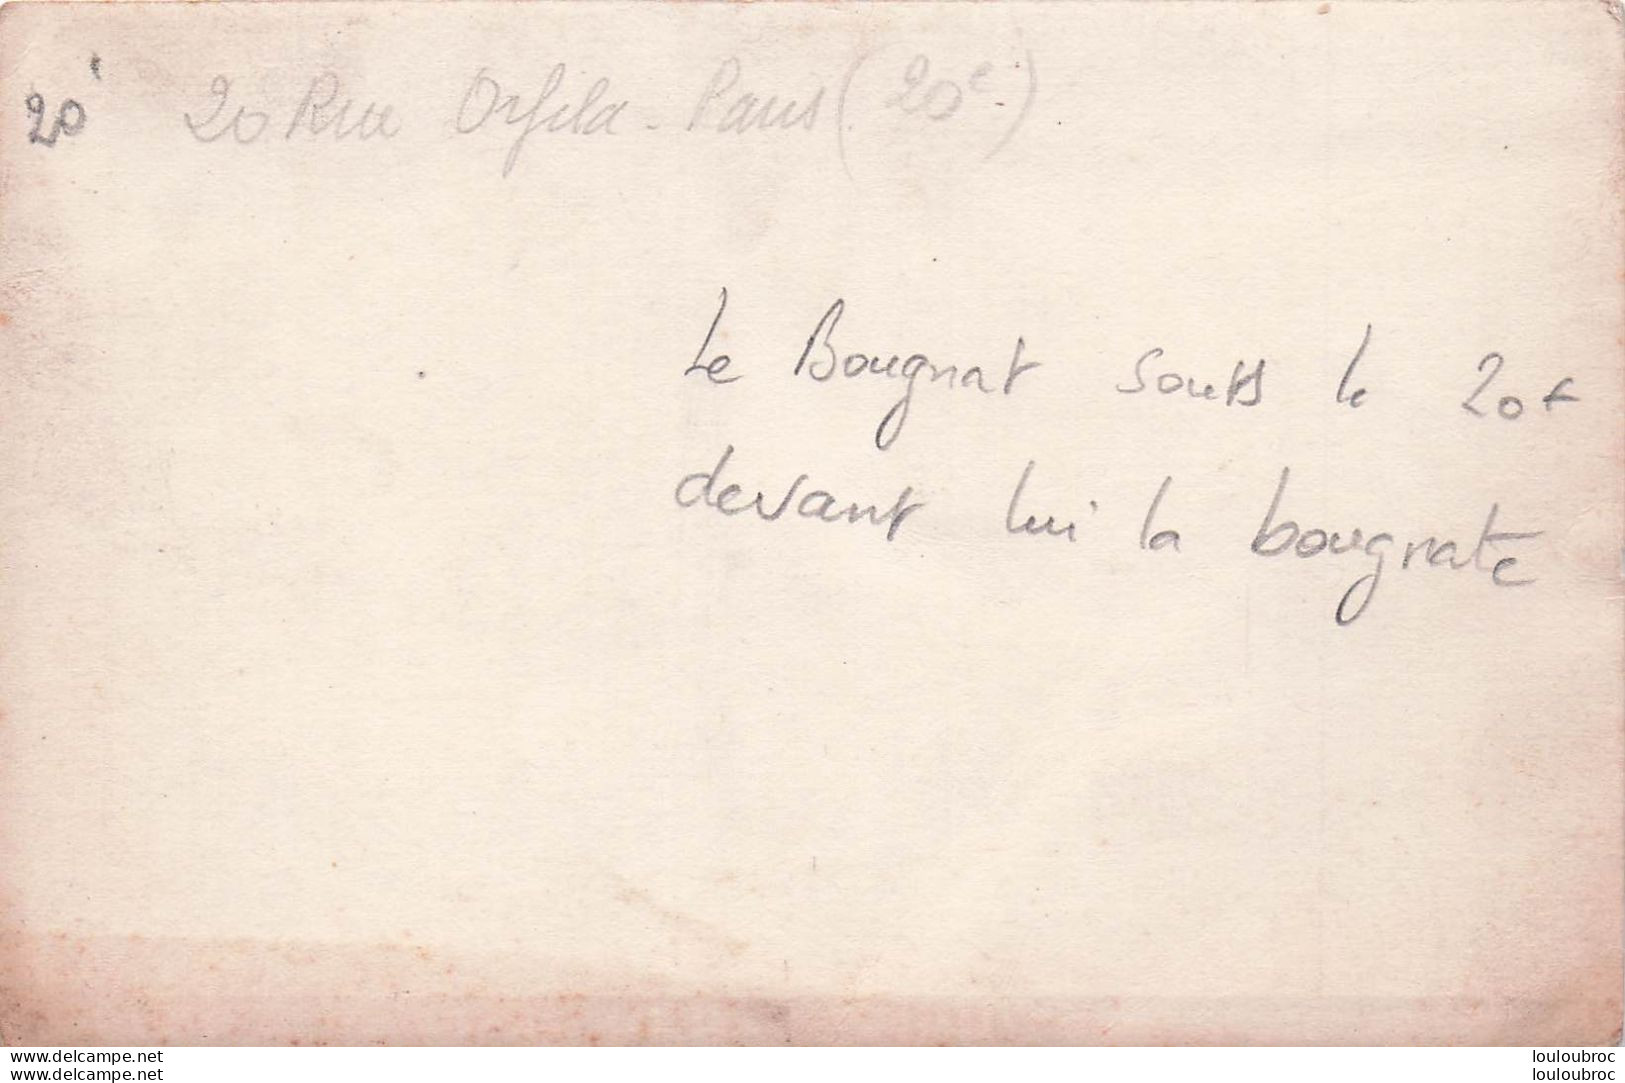 20e 20 Rue Orfila - Paris (20e)
Le Bougnat sous le 20 +
devant lui la bougnate
www.delcampe.net louloubroc
www.delcampe.net louloubroc